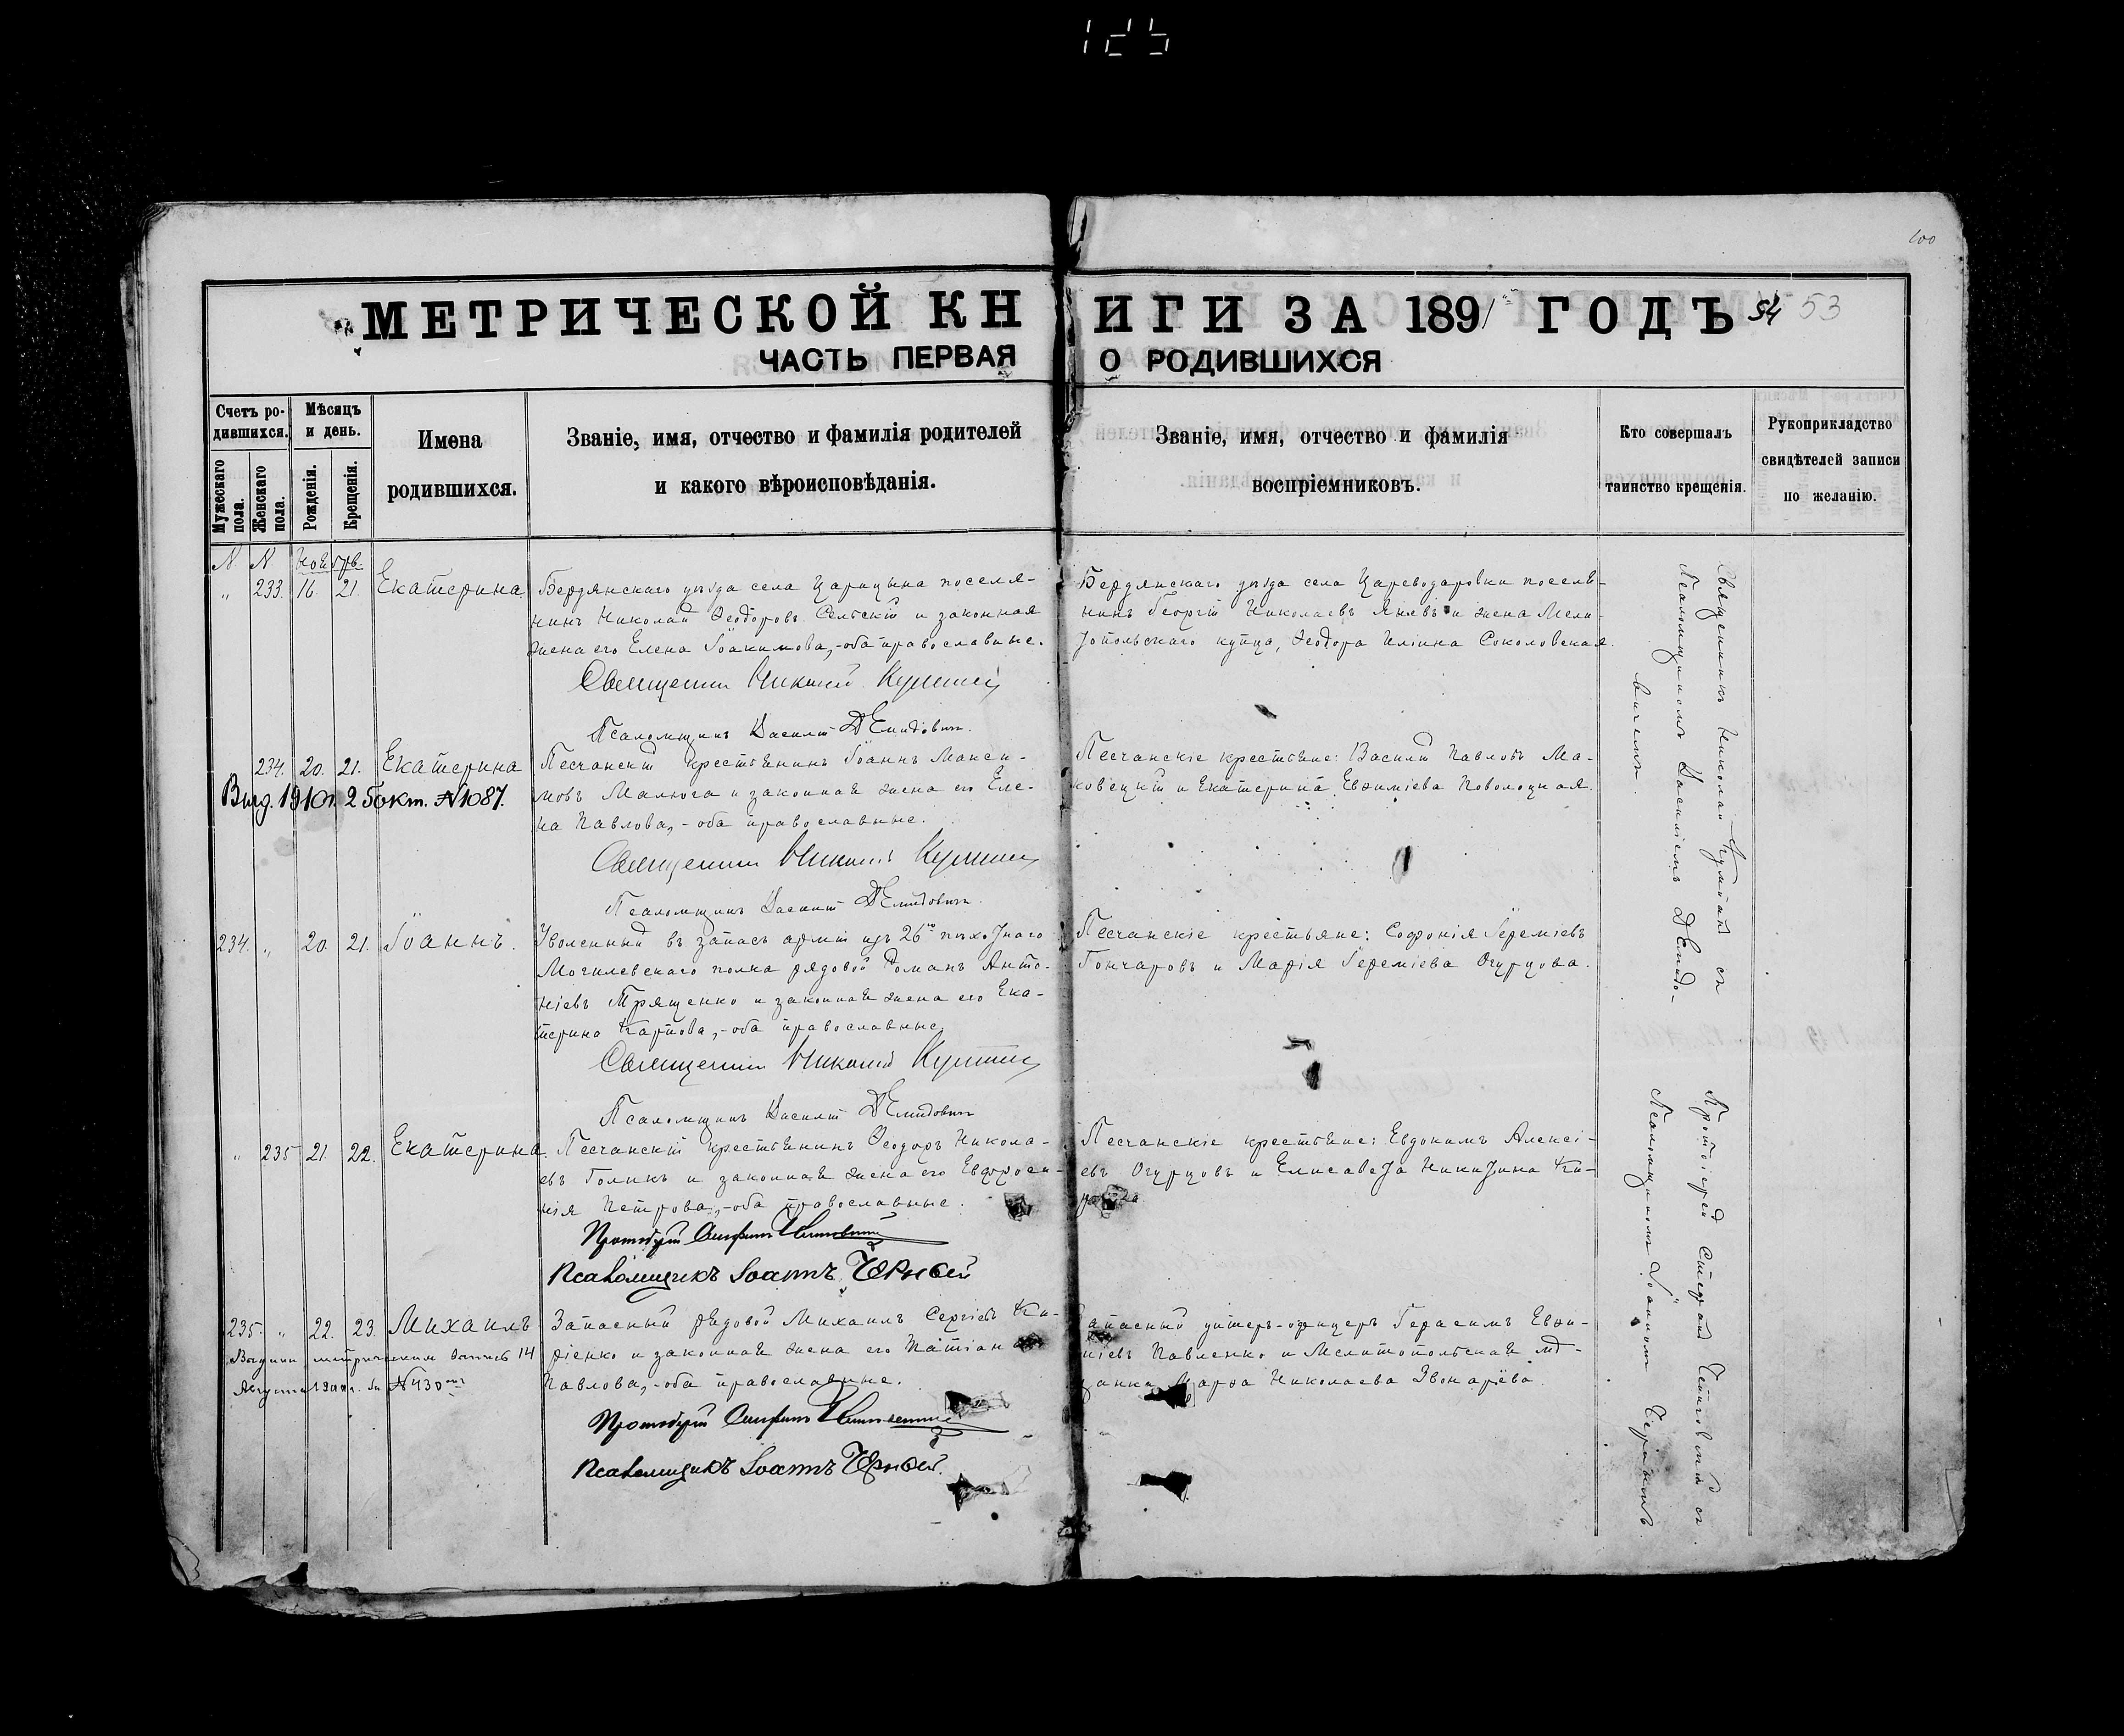 125
100
МЕТРИЧЕСКОЙ КНИГИ ЗА 1891 ГОДЪ 54 53
ЧАСТЬ ПЕРВАЯ О РОДИВШИХСЯ
Счетъ родившихся.
Мужескаго пола.
Женскаго пола.
Мѣсяцъ и день.
Рожденія.
Крещенія.
Имена родившихся.
Званіе, имя, отчество и фамилія родителей
и какого вѣроисповѣданія.
Званіе, имя, отчество и фамилія
воспріемниковъ.
Кто совершалъ
таинство крещенія.
Рукоприкладство
свидѣтелей записи
по желанію.
N N Ноябрь.
„ 233. 16. 21. Екатерина.
Бердянскаго уѣзда села Царицына поселя-
нинъ Николай Ѳеодоровъ Сельскій и законная
жена его Елена Іоакимова,-оба православные.
Священникъ Николай
Псаломщикъ Василій Демидовичъ.
Бердянскаго уѣзда села Цареводаровки поселя-
нинъ Георгій Николаевъ Яневъ и жена Мели-
топольскаго купца, Ѳеодора Иліина Соколовская.
234. 20. 21. Екатерина
Выд. 1910г. 2 окт. N1087.
Песчанскій крестьянинъ Іоаннъ Макси-
мовъ Малюга и законная жена его Еле-
на Павлова,-оба православные.
Священникъ Николай
Псаломщикъ Василій Демидовичъ.
Песчанскіе крестьяне: Василій Павловъ Ма-
ковецкій и Екатерина Евѳиміева Поволоцкая.
234. „ 20. 21. Іоаннъ.
Уволенный въ запасъ арміи изъ 26го пѣхотнаго
Могилевскаго полка рядовой Романъ Анто-
ніевъ Трященко и законная жена его Ека-
терина Карпова,-оба православные.
Священникъ Николай
Псаломщикъ Василій Демидовичъ
Песчанскіе крестьяне: Софронія Іереміевъ
Гончаровъ и Марія Іереміева Огурцова.
„ 235 21. 22. Екатерина.
Песчанскій крестьянинъ Ѳеодоръ Никола-
евъ Голикъ и законная жена его Евфроси-
нія Петрова,-оба православные.
Протоіерей Стефанъ
Псаломщикъ Іоаннъ Чернѣй
Песчанскіе крестьяне: Евдокимъ Алексі-
евъ Огурцовъ и Елисавета Никитина Ки-
235. „ 22. 23. Михаилъ
Выдана метрическая выпись 14
Августа за N430
Запасный рядовой Михаилъ Сергіевъ Ки-
ріенко и законная жена его Татіана
Павлова,-оба православные.
Протоіерей Стефанъ
Псаломщикъ Іоаннъ Чернѣй.
Запасный унтеръ-офицеръ Герасимъ Евѳи-
міевъ Павленко и Мелитопольская мѣ-
щанка Марѳа Николаева Звонарёва.
Священникъ Николай съ
Псаломщикомъ Василіемъ Демидо-
вичемъ.
Протоіерей Стефанъ съ
Псаломщикомъ Іоанномъ Чернѣемъ.